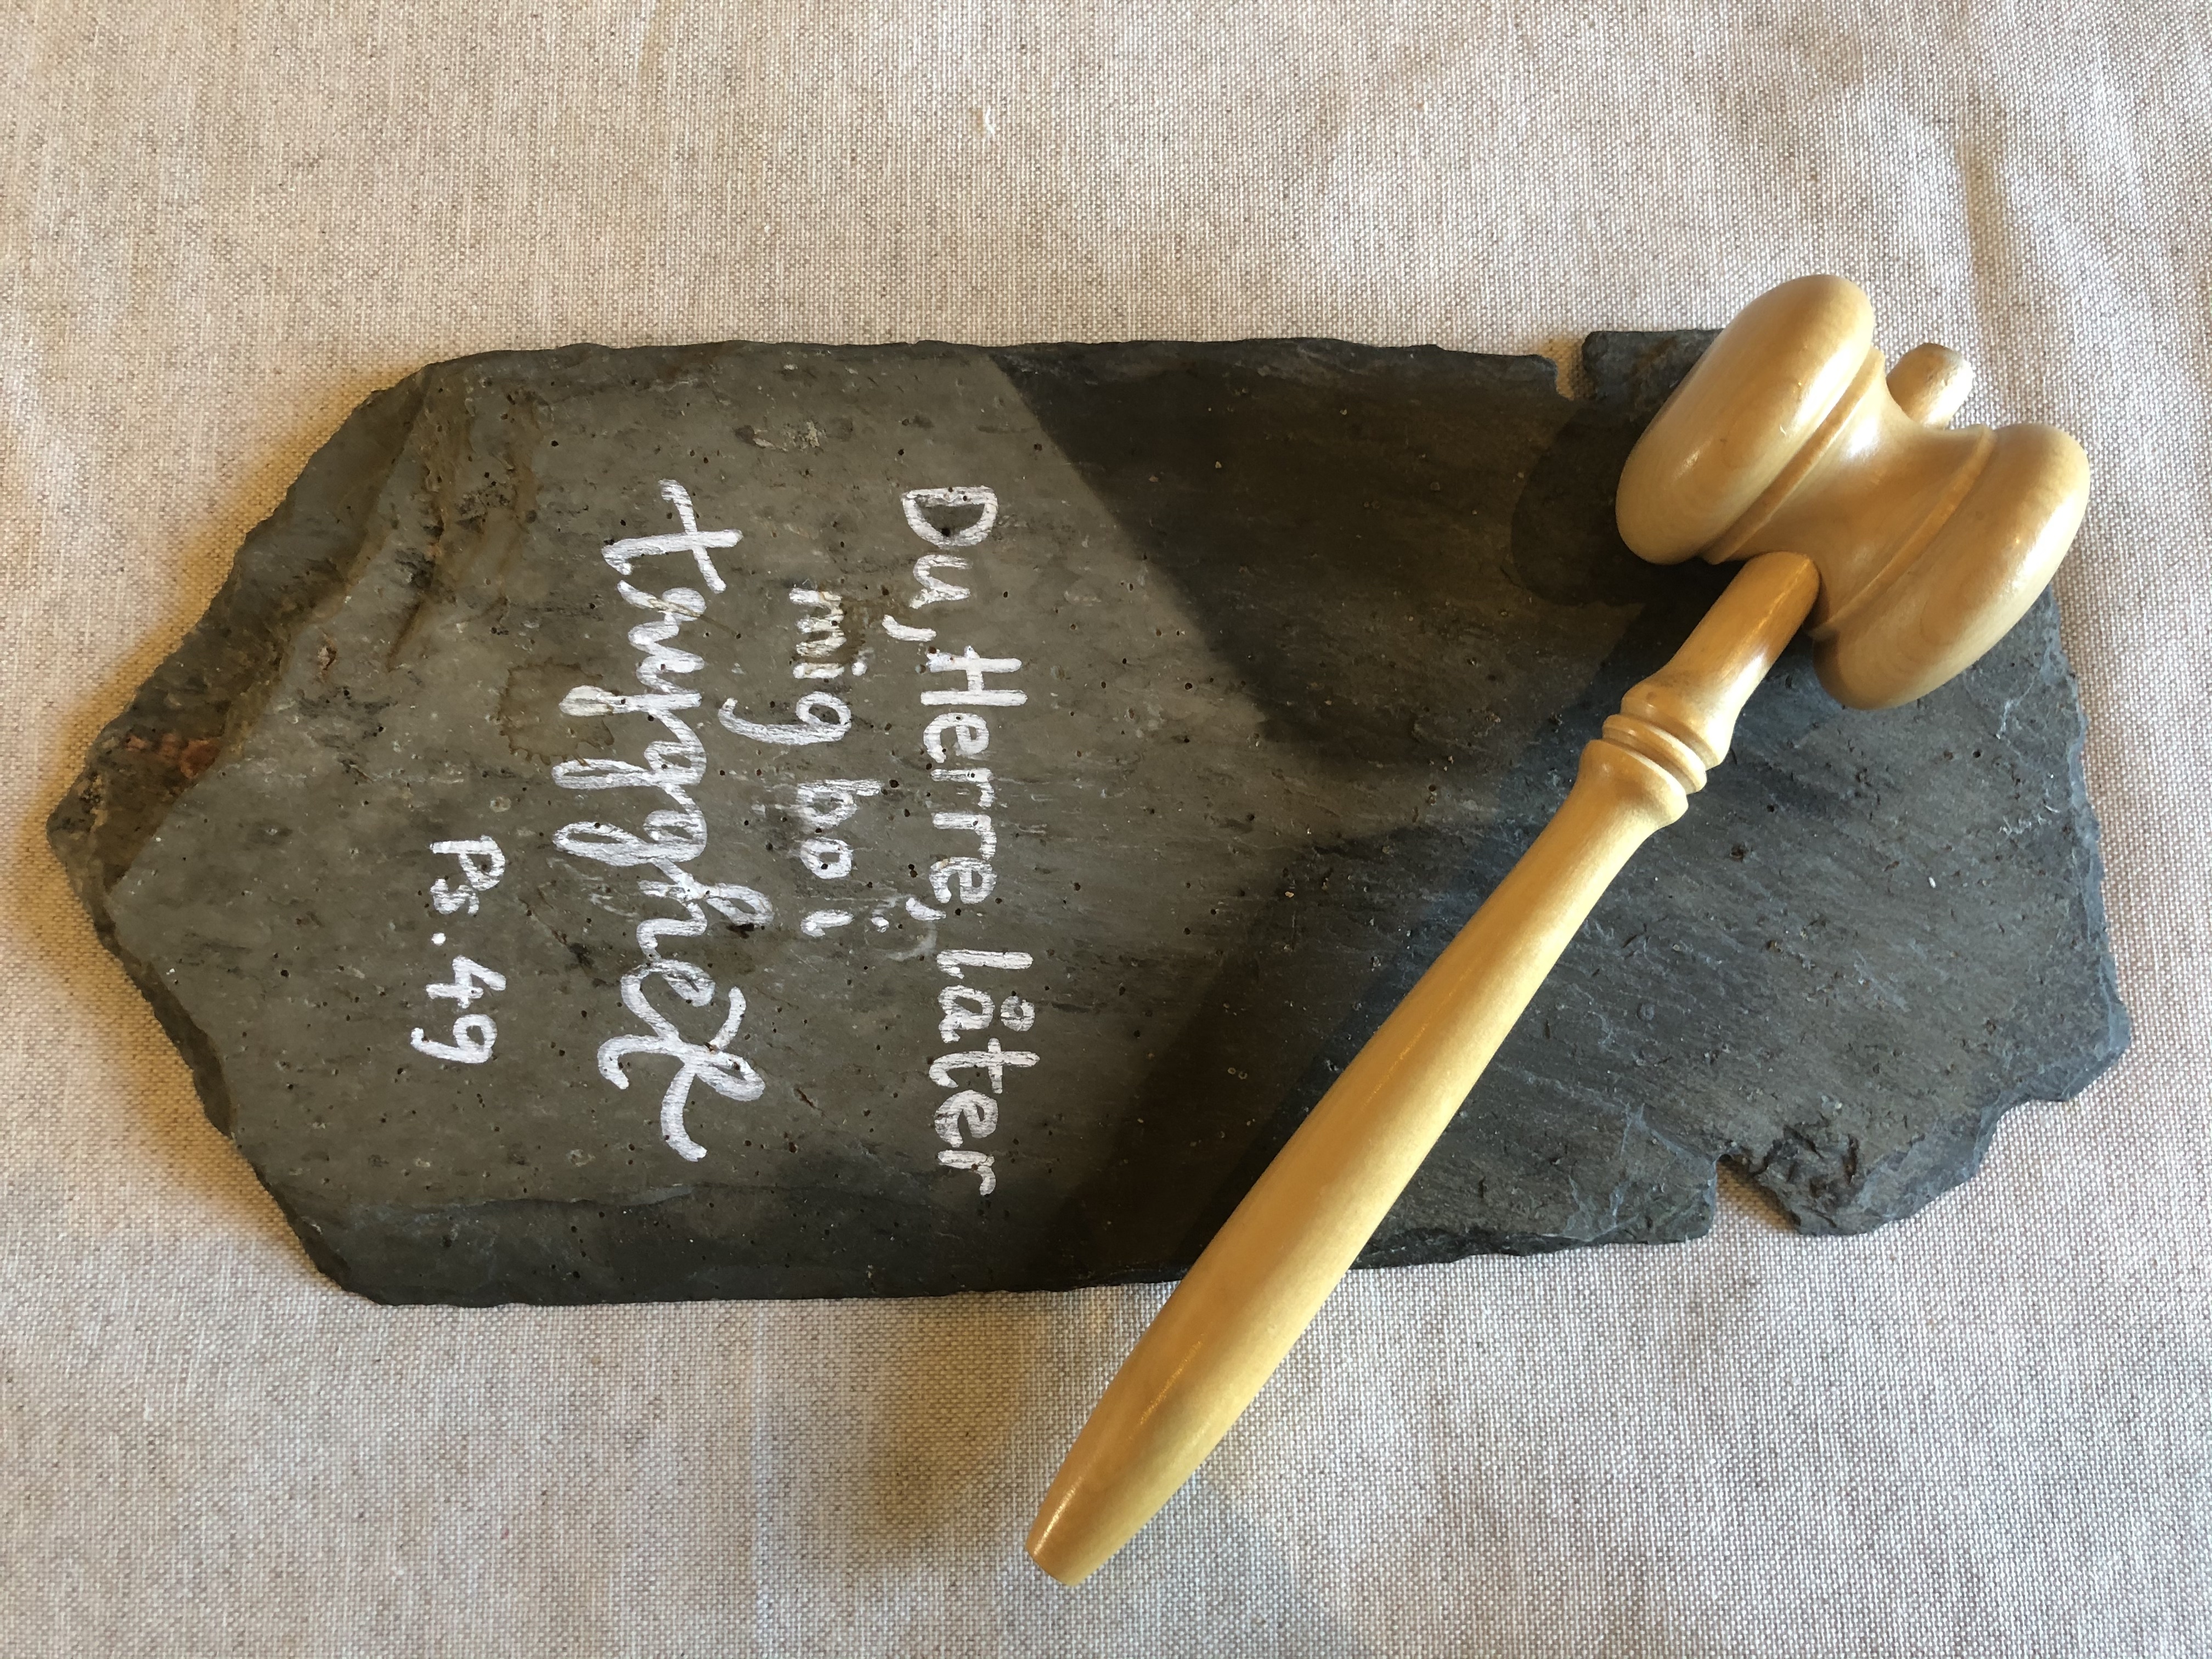 Du, Herre, låter
mig bo i
trygghet
Ps. 49